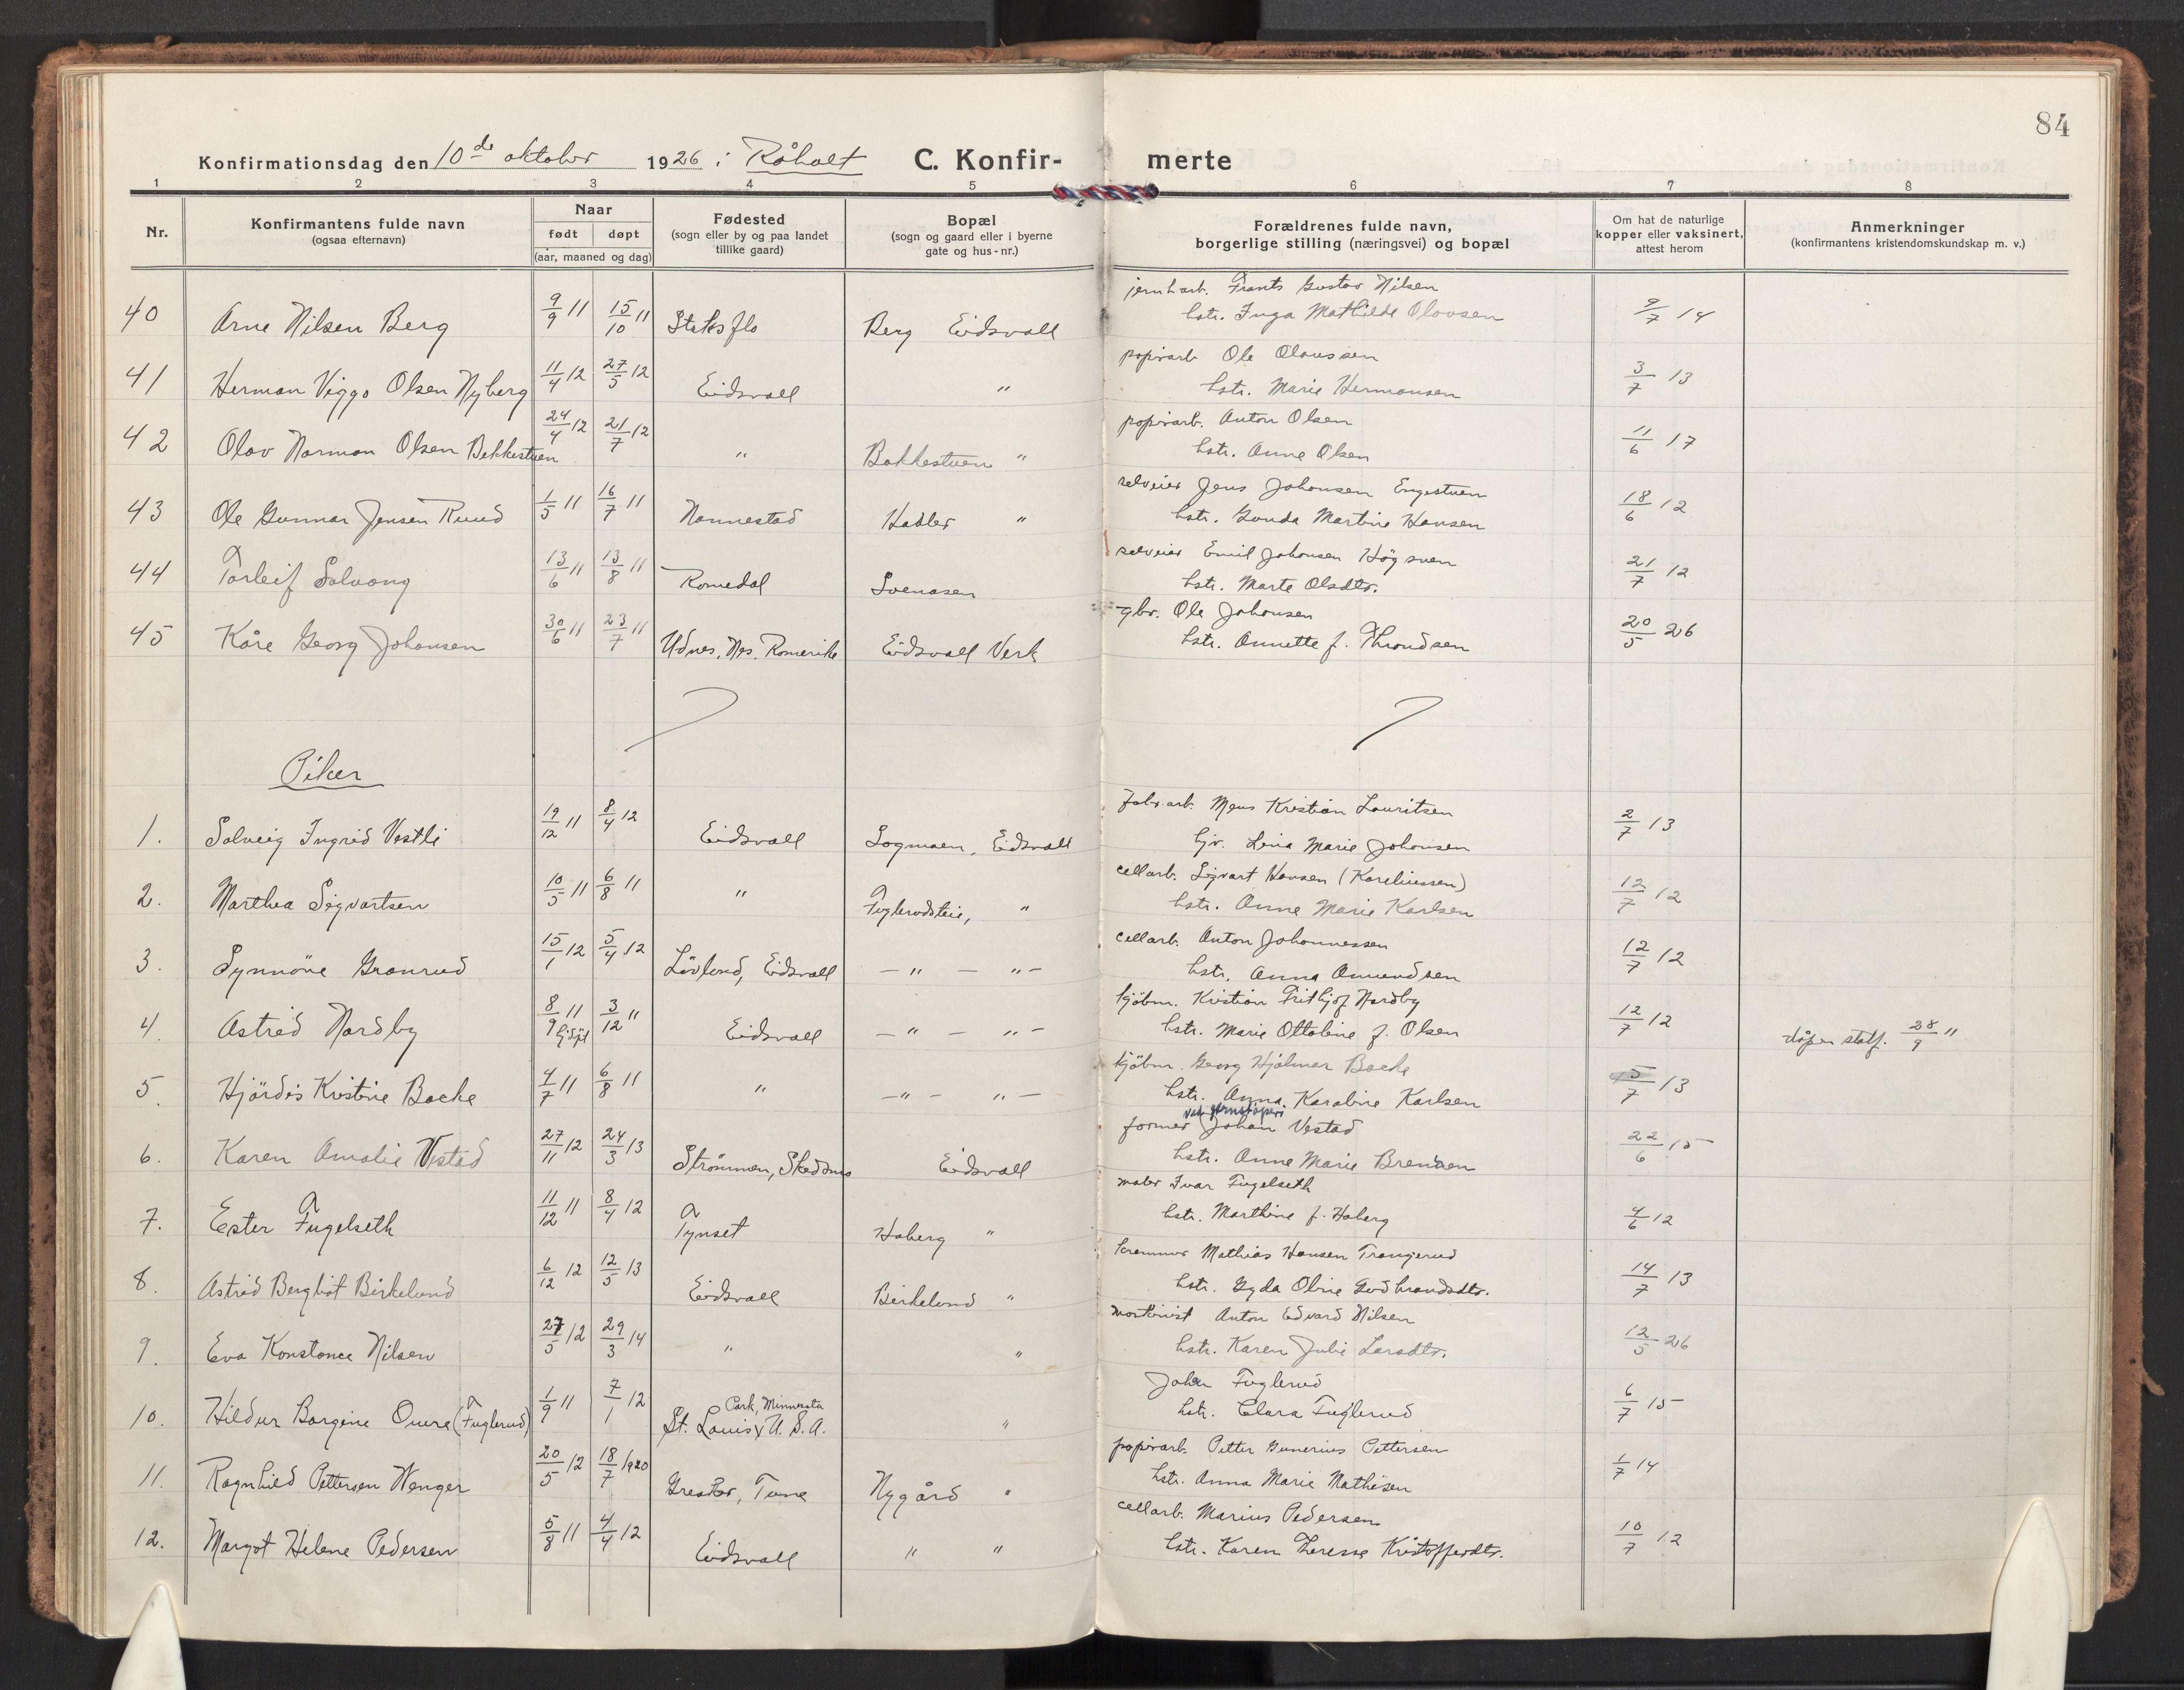 84
Konfirmationsdag den 10de oktober 1926 i Råholt C. Konfir- merte
1 2 3 4 5 6 7 8
Nr. Konfirmantens fulde navn (ogsaa efternavn) Naar født døpt (aar, maaned og dag) Fødested (sogn eller by og paa landet tillike gaard) Bopæl (sogn og gaard eller i byerne gate og hus-nr.) Forældrenes fulde navn, borgerlige stilling (næringsvei) og bopæl Om hat de naturlige kopper eller vaksinert, attest herom Anmerkninger (konfirmantens kristendomskundskap m. v.)
jernarb. Frants Gustav Nilsen
40 Arne Nilsen Berg 9/9 11 15/10 11 Steksflo Berg Eidsvall hstr. Inga Mathilde Olavsen 9/7 14
papirarb. Ole Olaussen
41 Herman Viggo Olsen Nyberg 11/4 12 27/5 12 Eidsvall " hstr. Marie Hermansen 3/7 13
papirarb. Anton Olsen
42 Olav Norman Olsen Bekkestuen 24/4 12 21/7 12 " Bakkestuen " hstr. Anne Olsen 11/6 17
selveier Jens Johansen Engestuen
43 Ole Gunnar Jensen Ruud 1/5 11 16/7 11 Nannestad Hadler " hstr. Gunda Martine Hansen 18/6 12
selveier Emil Johansen Høgsveen
44 Torleif Solvang 13/6 11 13/8 11 Romedal Svenåsen hstr. Marte Olsdtr. 21/7 12
gbr. Ole Johansen
45 Kåre Georg Johansen 30/6 11 23/7 11 Udnes, Nes, Romerike Eidsvall Verk hstr. Annette f. Throndsen 20/5 26
Piker
fabr.arb. Mens Kristian Lauritsen
1. Solveig Ingrid Vestli 19/12 11 8/4 12 Eidsvall Sagmoen, Eidsvall hjv. Lina Marie Johansen 2/7 13
cellarb. Sigvart Hansen (Kareliussen)
2. Marthea Sigvartsen 10/5 11 6/8 11 " Fuglerudsteie, " hstr. Anne Marie Karlsen 12/7 12
cellarb. Anton Johannessen
3. Synnöve Granrud 15/1 12 5/4 12 Lövlund, Eidsvall — " — " — hstr. Anna Amundsen 12/7 12
kjöbm. Kristian Frithjof Nordby
4. Astrid Nordby 8/9 11 hjdpt 3/12 11 Eidsvall — " — " — hstr. Marie Ottoline f. Olsen 12/7 12 dåpen statf. 28/9 11
kjöbm. Georg Hjalmar Bache
5. Hjördis Kristine Bache 4/7 11 6/8 11 " — " — " — hstr. Anna Karoline Karlsen 5/7 13
ved jernstöperi
former Johan Vestad
6. Karen Amalie Vestad 27/11 12 24/3 13 Strömmen, Skedsmo Eidsvall hstr. Anne Marie Brendsen 22/6 15
maler Ivar Fugelseth
7. Ester Fugelseth 11/12 11 8/4 12 Tynset Haberg " hstr. Marthine f. Haberg 4/6 12
kremmer Mathias Hansen Trangerud
8. Astrid Bergliot Birkelund 6/12 12 12/5 13 Eidsvall Birkelund " hstr. Gyda Oline Gudbrandsdtr. 14/7 13
maskinist Anton Edvard Nilsen
9. Eva Konstance Nilsen 27/5 12 29/3 14 " " hstr. Karen Julie Larsdtr. 12/5 26
Johan Fuglerud
10. Hildur Borgine Overa (Fuglerud) 1/9 11 7/1 12 St. Louis Park, Minnesota U. S. A. " hstr. Clara Fuglerud 6/7 15
papirarb. Petter Gunerius Pettersen
11. Ragnhild Pettersen Wenger 20/5 12 18/7 1920 Greaker, Tune Nygård " hstr. Anna Marie Mathisen 1/7 14
cellarb. Marius Pedersen
12. Margot Helene Pedersen 5/8 11 4/4 12 Eidsvall " " hstr. Karen Therese Kristoffersdtr. 10/7 12